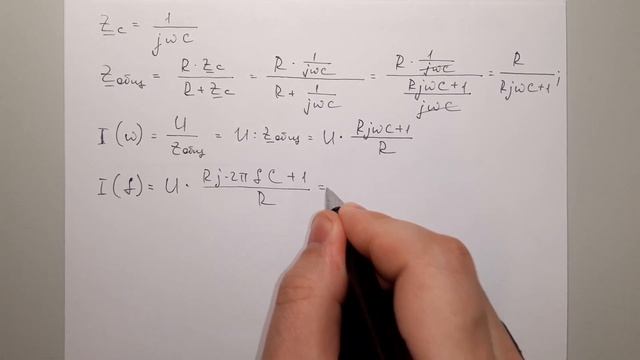 Z_c = 1/(jωC)
Z_общ = (R · Z_c)/(R + Z_c) = (R · 1/(jωC))/(R + 1/(jωC)) = (R · 1/(jωC))/((RjωC+1)/(jωC)) = R/(RjωC+1);
I(ω) = U/Z_общ = U : Z_общ = U · (RjωC+1)/R
I(f) = U · (Rj·2πfC+1)/R =